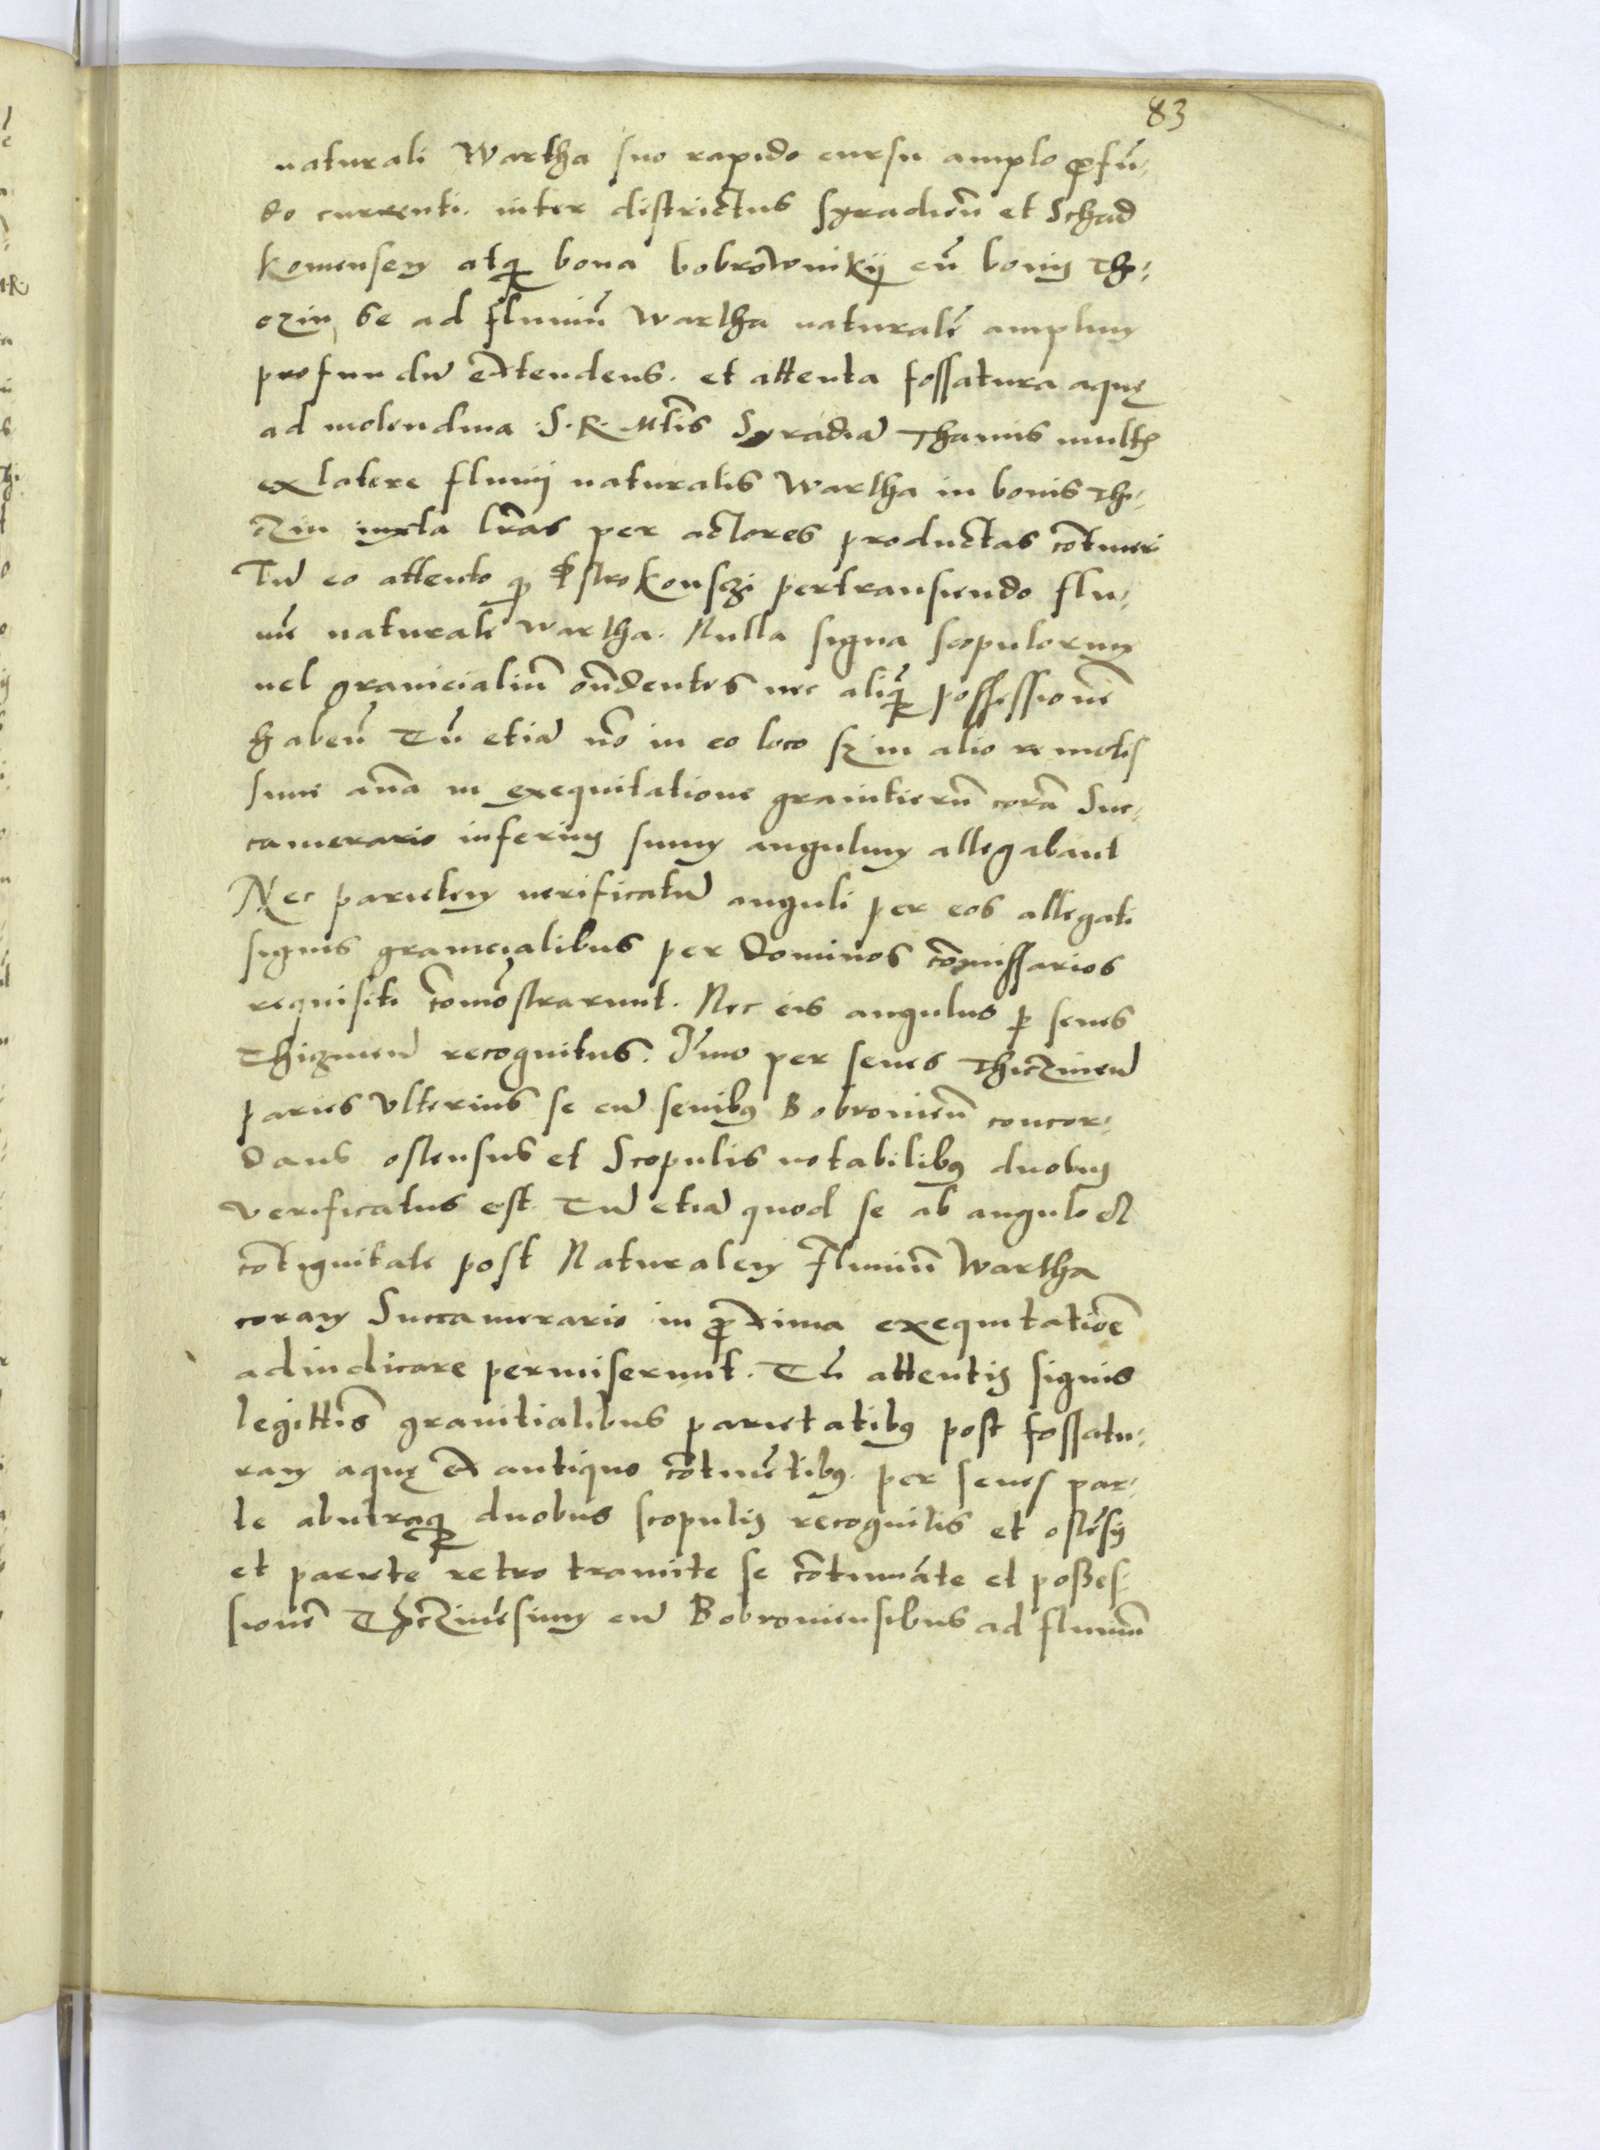 83
naturali Wartha suo rapido cursu amplo ꝓfū-
do currenti. inter districtus Syradieñ et Schad
komensem atqꝫ bona bobrowniky cū bonis Th-
czin se ad fluuiū Wartha naturalē amplum
profundū extendens. et attenta fossatura aquę
ad molendina .S. R. Mtis Syradiā
ex latere fluuij naturalis Wartha in bonis Thi-
czin iuxta lr̃as per actores productas cōtineri
Tū eo attento qꝫ Ostrokonsczi pertranseundo flu-
uiū naturalē Wartha. Nulla signa scopulorum
uel granicialiū oñdentes nec aliquā possessionē
habeñ Tū etiā nō in eo loco sꝫ in alio remotis
sime in exequitatione corā Suc-
camerario inferius suum angulum allegabant
Nec parietem verificatū anguli per eos allegati
signis granicialibus per Dominos cōmissarios
requisiti cōmōstrarunt. Nec eis angulus ꝑ senes
recognitus. Imo per senes Thiczineñ
paries Vlterius se cū senibꝰ Bobronieñ concor-
dans ostensus et Scopulis notabilibꝰ duobus
verificatus est. Tū etiā quod se ab angulo et
cōtiguitate post Naturalem Fluuiū Wartha
coram Succamerario in ꝓxima exequitatiōe
adiudicare permiserunt. Tū attentis signis
legittīs granitialibus parietatibꝰ post fossatu-
ram aquę ex antiquo cōtinētibꝰ. per senes par-
te abutraqꝫ duobus scopulis recognitis et ostēsis
et pariete retro tramite se cōtinuāte et posses-
sionē Thiczinēsium cū Bobroniensibus ad fluuiū